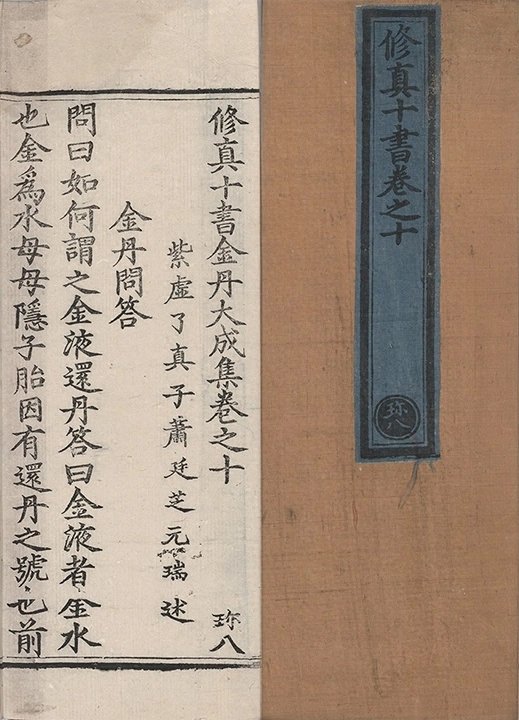 修真十書卷之十
珎八
修真十書金丹大成集卷之十 珎八
紫虛了真子蕭廷芝元瑞述
金丹問答
問曰如何謂之金液還丹答曰金液者金水
也金爲水母母隱子胎因有還丹之號也前